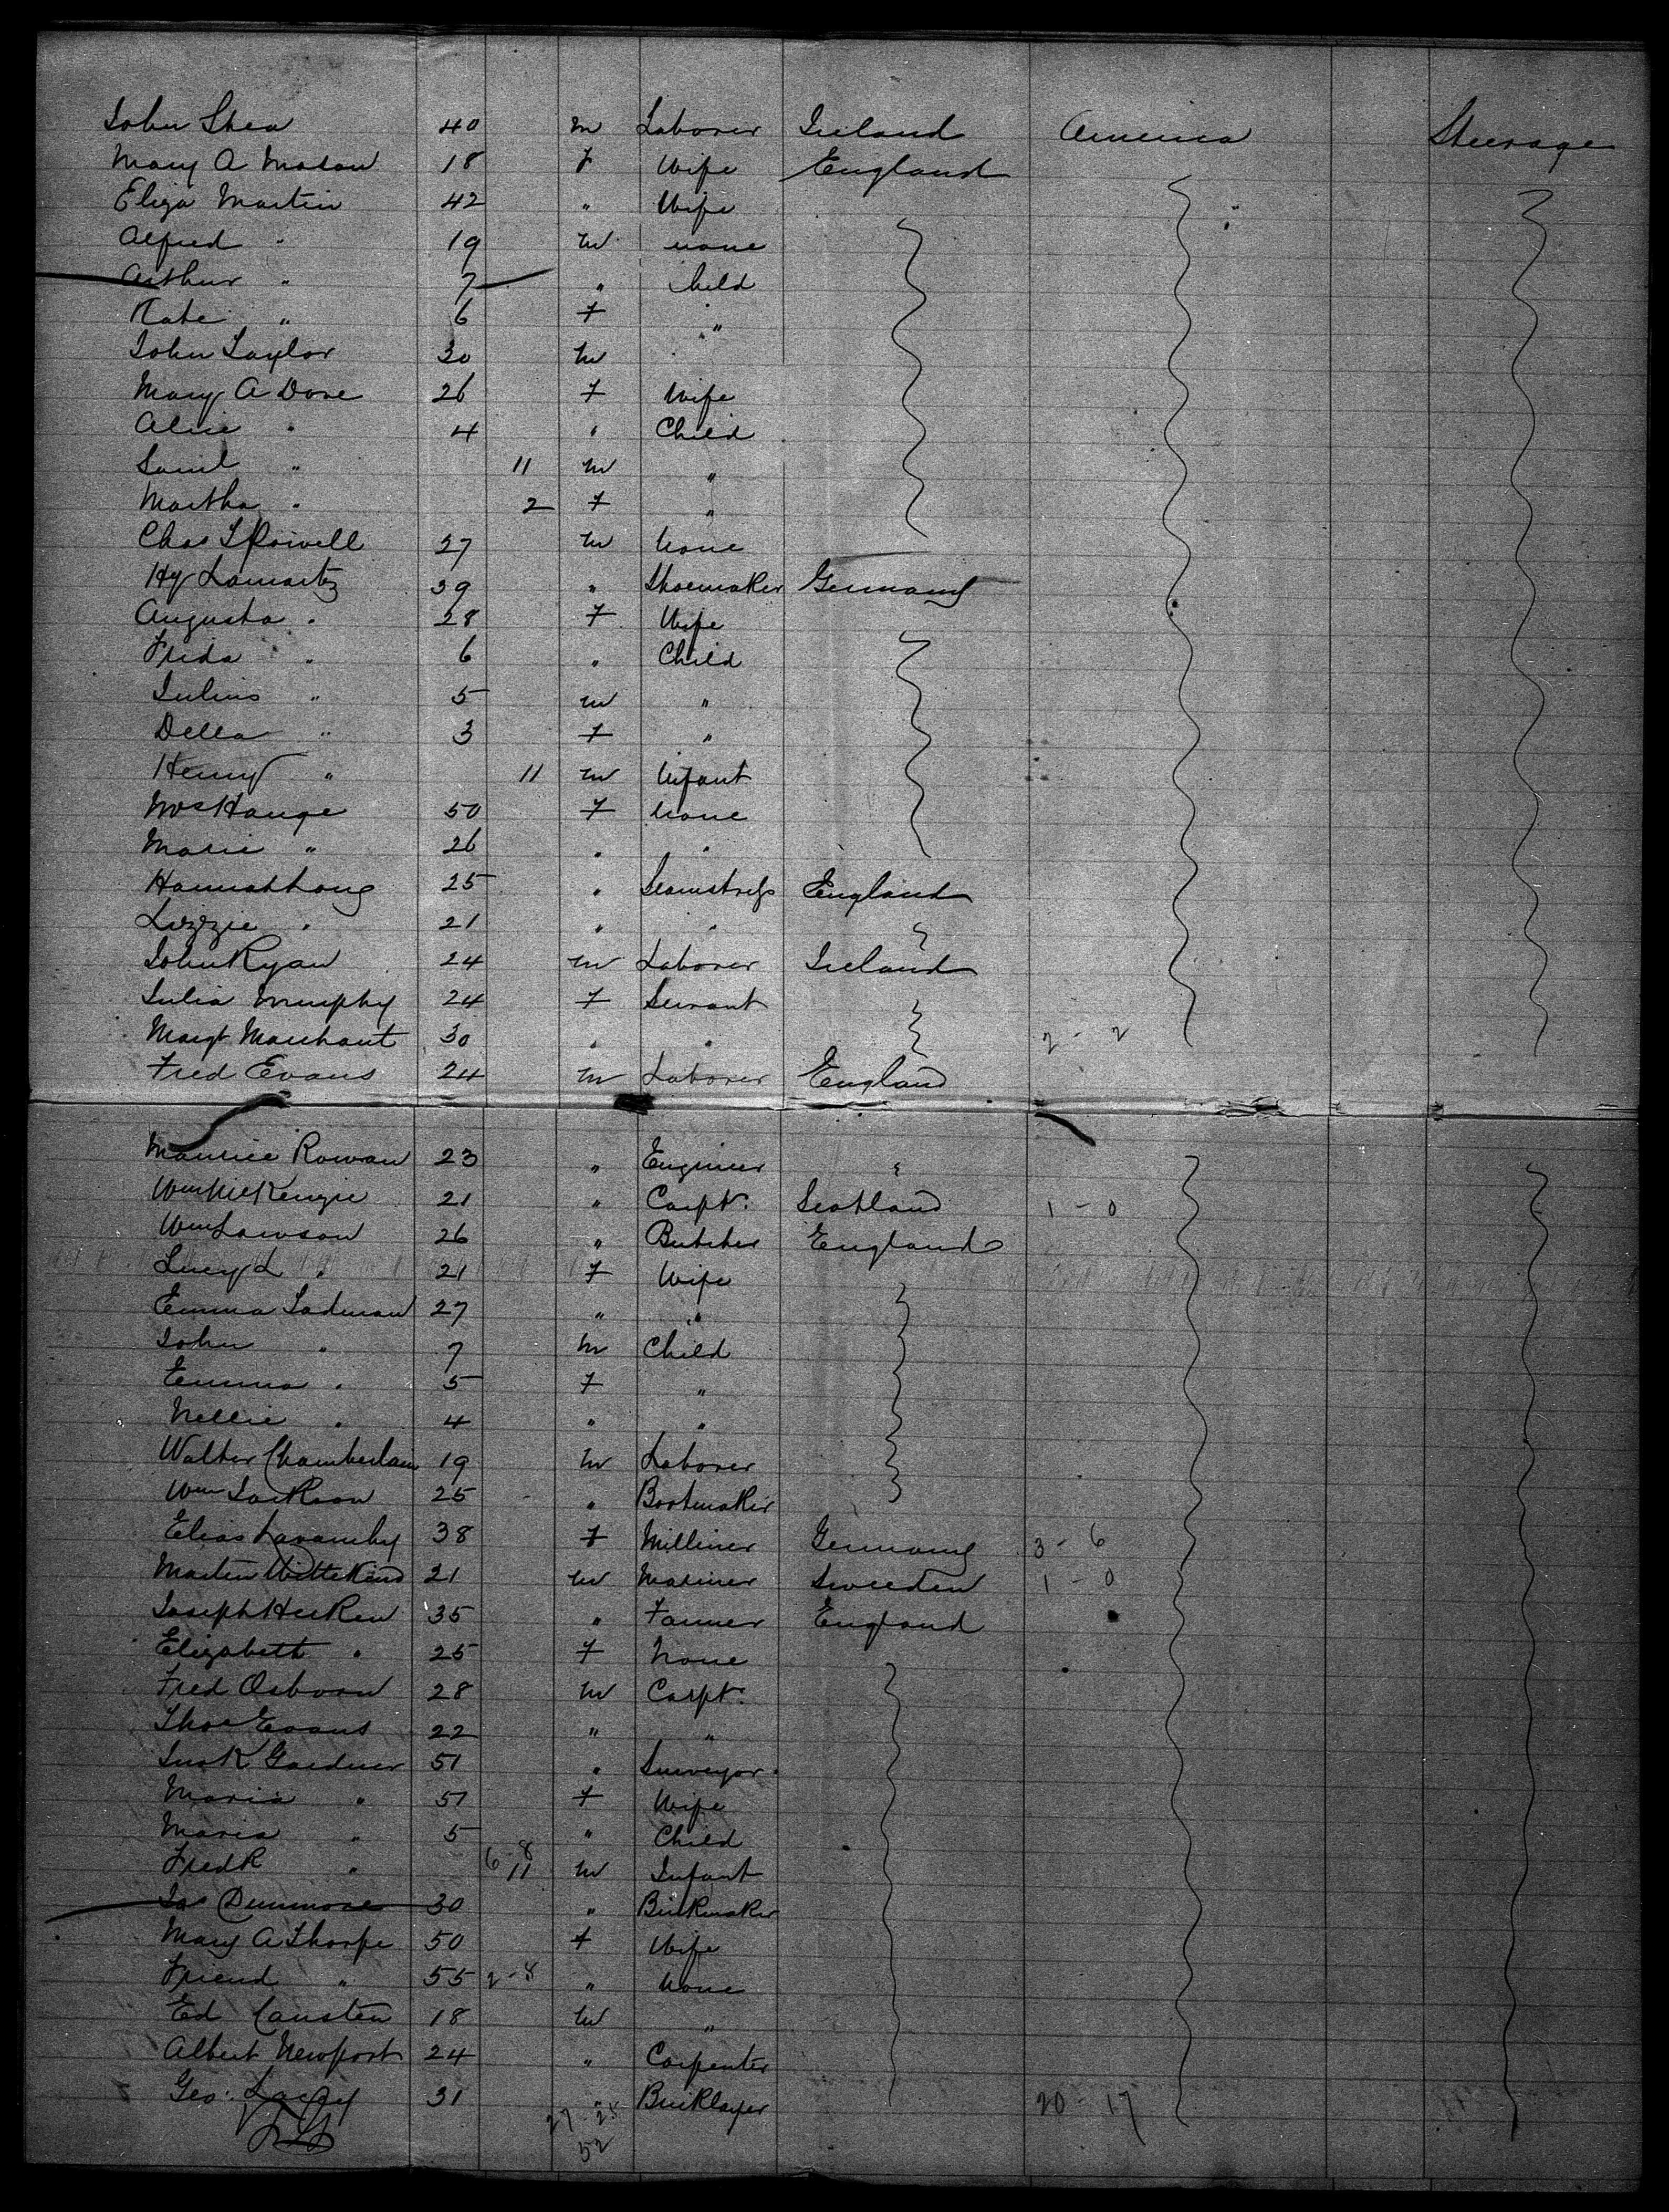 John Shea 40 m Laborer Ireland America Steerage
Mary A Mason 18 f Wife England
Eliza Martin 42 " Wife
Alfred " 19 m none
Arthur " 7 " Child
Kate " 6 f "
John Taylor 30 m
Mary A Dore 26 f Wife
Alice " 4 " Child
Saml " 11 m "
Martha " 2 f "
Chas 27 m none
Hy 39 " Shoemaker Germany
Augusta " 28 f Wife
Frida " 6 " Child
Julius " 5 m "
Della " 3 f "
Henry " 11 m Infant
Mrs Hauge 50 f none
Marie " 26 " "
Hannah Long 25 " Seamstress England
Lizzie " 21 " "
John Ryan 24 m Laborer Ireland
Julia Murphy 24 f Servant
Margt Marchant 30 " " 2 - 2
Fred Evans 24 m Laborer England
Maurice Rowan 23 " Engineer "
Wm McKenzie 21 " Carpt. Scotland 1 - 0
Wm Lawson 26 " Butcher England
Lucy L " 21 f Wife
Emma 27 " "
John " 7 m Child
Emma " 5 f "
Nellie " 4 " "
Walter Chamberlain 19 m Laborer
Wm Jackson 25 " Bootmaker
Elias 38 f Milliner Germany 3 - 6
Martin Wittekind 21 m Mariner Sweeden 1 - 0
Joseph 35 " Farmer England
Elizabeth " 25 f None
Fred Osborn 28 m Carpt.
Thos Evans 22 " "
Gardner 51 " Surveyor
Maria " 51 f Wife
Maria " 5 " Child
Fredk " 6 - 8 11 m Infant
Jas Dunmore 30 " Brickmaker
Mary A Thorpe 50 f Wife
Friend " 55 2 - 8 " None
Ed Causten 18 m "
Albert Newport 24 " Carpenter
Geo. Lacey 31 " Bricklayer 20 - 17
27 - 25
52